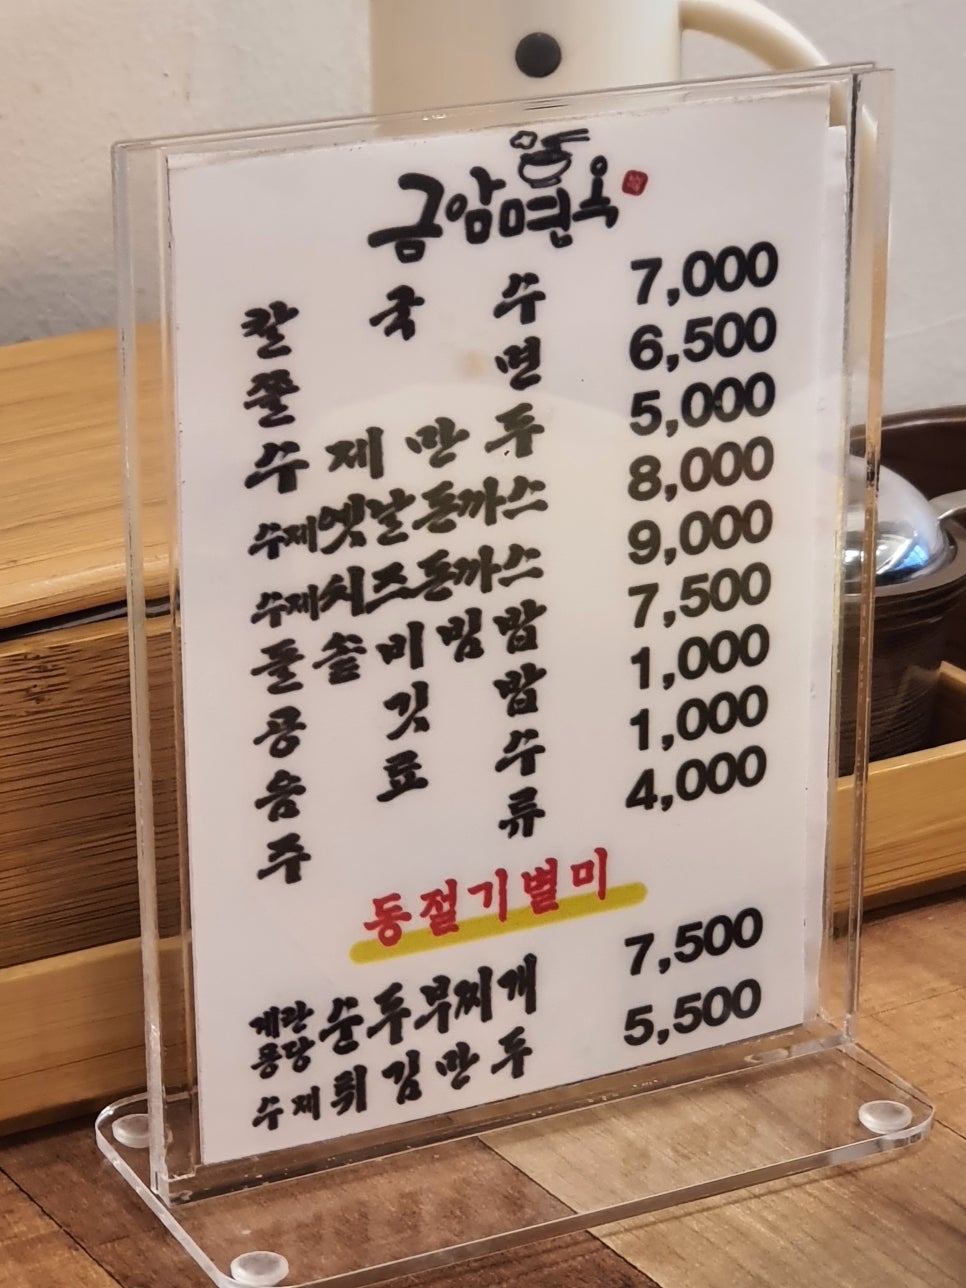 금암면옥
칼국수 7,000
쫄면 6,500
수제만두 5,000
수제옛날돈까스 8,000
수제치즈돈까스 9,000
돌솥비빔밥 7,500
공깃밥 1,000
음료수 1,000
주류 4,000
동절기별미
계란퐁당순두부찌개 7,500
수제튀김만두 5,500